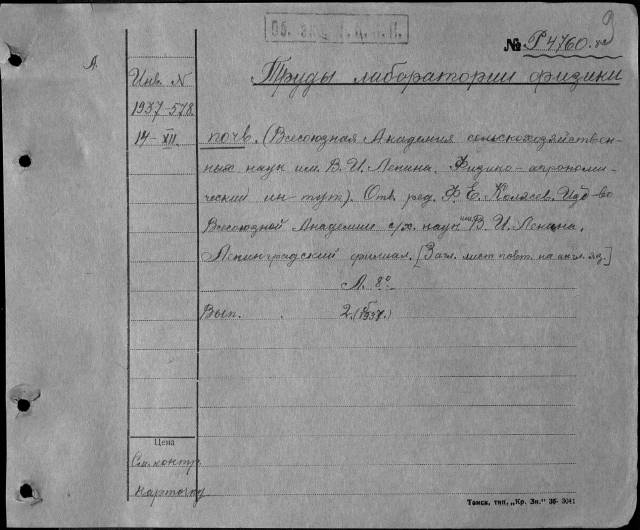 9
№ Р 4760.
А
Инв. N
1937-578.
14-XII.
Труды лаборатории физики
почв. (Всесоюзная Академия сельскохозяйствен-
ных наук им. В. И. Ленина. Физико-агрономи-
ческий ин-тут). Отв. ред. Ф. Е. Колясев. Изд-во
Всесоюзной Академии с/х. наук им В. И. Ленина,
Ленинградский филиал. [Загл. лист повт. на англ. яз.]
Л. 8°
Вып. 2. (1937.)
Цена
См. контр.
карточку
Томск, тип. „Кр. Зн." 36- 3041